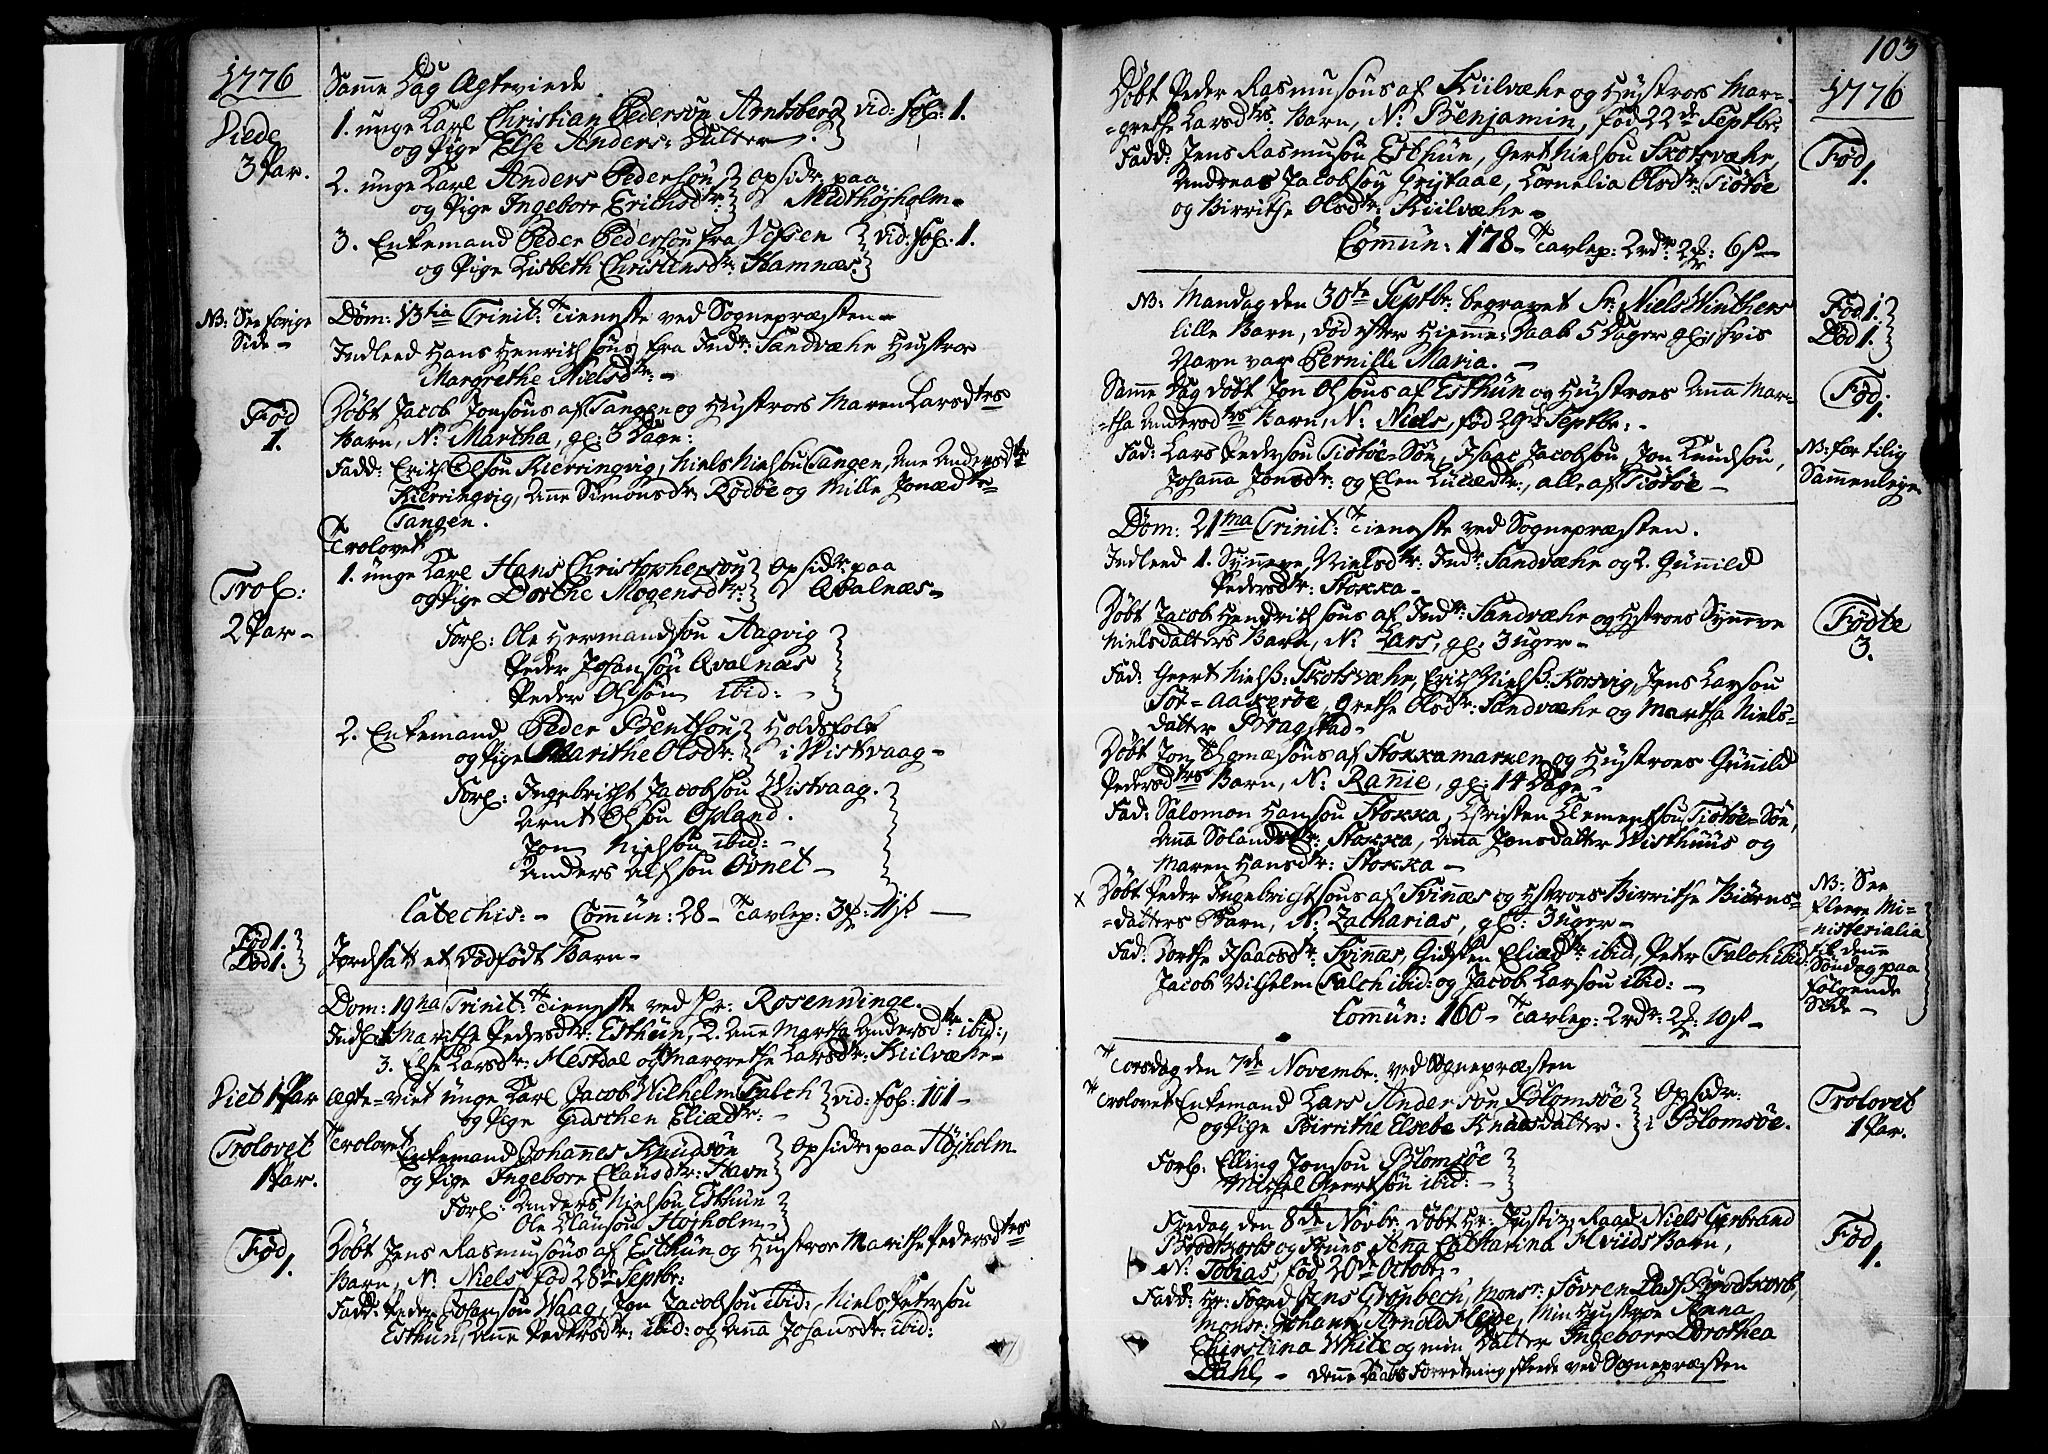 1776
Viede
3 Par.
Samme Dag Ægteviede.
1. unge Karl Christian Pedersøn Arntsberg } vid: fol: 1.
og Pige Else Anders-Datter.
2. unge Karl Anders Pedersøn } Opsidr: paa
og Pige Ingebore Erichsdtr: } Midthøjholm-
3. Enkemand Peder Pedersøn fra Vefsen } vid: fol: 1.
og Pige Lisbeth Christensdtr: Hamnæs }
NB: See forige
Side -
Dom: 13tia Trinit: Tieneste ved Sognepræsten-
Indleed Hans Henrichsøns fra Indr: Sandvæhr Hustroe
Margrethe Nielsdtr: -
Fød
1.
Døbt Jacob Jonsøns af Tangen og Hustroes Maren Larsdtrs
Barn, N: Martha, gl: 3 Dage:
Fadd: Erich Olsøn Kierringvig, Niels Nielsøn Tangen, Ane Andersdtr
Kierringvig, Anne Simonsdtr: Rødøe og Mille Jonædtr-
Tangen.
Trolovet
Trol:
2 Par -
1. unge Karl Hans Christophersøn } Opsidr: paa
og Pige Dorthe Mogensdtr: } Qvalnæs-
Forl: Ole Hermandsøn Aagvig
Peder Johansøn Qvalnæs
Peder Olsøn ibid: -
2. Enkemand Peder Bentsøn } Holdsfolk
og Pige Marithe Olsdtr: } i Wistvaag-
Forl: Ingebricht Jacobsøn Vistvaag.
Arnt Olsøn Opland.
Jon Nielsøn ibid: -
Anders Alfsøn Øvnet -
Catechis: - Commun: 28 - Tavlep: 3 11 s -
Fød 1.
Død 1.
Jordsatt et Dødfødt Barn-
Dom: 19na Trinit: Tieneste ved Hr: Rosenvinge.
Indl: 1 Marithe Pedersdtr: Esthun, 2. Anne Martha Andersdtr ibid:,
3. Else Larsdtr: Mestdal og 4 Margrethe Larsdtr: Kiilvæhr-
Viet 1 Par
Ægte-viet unge Karl Jacob Wilhelm Falch } vid: fol: 101 -
og Pige Gidschen Eliædtr: -
Trolovet
1 Par.
Trolovet
Enkemand Johannes Knudsøn } Opsidr: paa Højholm
og Pige Ingebore Clausdtr: Havn
Forl: Anders Nielsøn Esthun
Ole Clausøn Højholm-
Fød
1.
Døbt Jens Rasmusøns af Esthun og Hustroe Marithe Pedersdtrs
Barn, N: Niels, fød 28de Septbr:
Fadd: Peder Johansøn Waag, Jon Jacobsøn ibid:, Niels Petersøn
Esthun, Anne Pedersdtr: ibid: og Anna Johansdtr: ibid:
103
1776
Døbt Peder Rasmusøns af Kiilvæhr og Hustroes Mar-
-grethe Larsdtrs: Barn, N: Benjamin, fød 22de Septbr:
Fød
1.
Fadd: Jens Rasmusøn Esthun, Gert Nielsøn Skotsvæhr,
Andreas Jacobsøn Grijtaae, Cornelia Olsdtr: Tiøtøe
og Birrithe Olsdtr: Kiilvæhr-
Commun: 178 - Tavlep: 2 rdr 2 6 s -
Fød 1.
Død 1.
NB: Mandag den 30te Septbr: begravet Sr: Niels Winthers
lille Barn, død efter Hiemme-Daab 5 Dager gl:, hvis
Navn var Pernille Maria. -
Fød
1.
Samme Dag døbt Jon Olsøns af Esthun og Hustroes Anna Mar-
-tha Andersdtrs Barn, N: Niels, fød 29de Septbr: -
NB: for tilig
Sammenleye
Fad: Lars Pedersøn Tiøtøe-Søn, Isaac Jacobsøn, Jon Knudsøn,
Johanna Jonsdtr: og Elen Lucædtr:, alle af Tiøtøe -
Dom: 21ma Trinit: Tieneste ved Sognepræsten.
Indleed 1. Synneve Nielsdtr: Indr: Sandvæhr og 2. Gunnild
Pedersdtr: Stokka-
Fødte
3.
Døbt Jacob Hendrichsøns af Indr: Sandvæhr og Hustroes Synneve
Nielsdatters Barn, N: Lars, gl: 3 Uger-
Fad: Geert Niels: Skotsvæhr, Erich Niels: Korsvig, Jens Larsøn
Sør-Aacherøe, Grethe Olsdtr: Sandvæhr og Martha Niels-
datter Bragstad-
Døbt Jon Thomæsøns af Stokkamarken og Hustroes Gunnild
Pedersdtrs Barn, N: Ranie, gl: 14 Dage -
Fad: Salomon Hansøn Stokka, Christen Clementsøn Tiøtøe-Søn,
Anna Solandsdtr: Stokka, Anna Jonsdatter Wisthuus og
Maren Hansdtr: Stokka -
x Døbt Peder Ingebrichtsøns af Svinnæs og Hustroes Birrithe Biørns-
-datters Barn, N: Zacharias, gl: 3 Uger-
Fad: Dorthe Isaacsdtr: Svinnæs, Gidsken Eliædtr ibid, Peter Falch ibid:
Jacob Vilhelm Falch ibid: og Jacob Larsøn ibid: -
Commun: 160 - Tavlep: 2 rdr: 2 10 s -
NB: See
fleere Mi-
-nisterialia
til denne
Søndag paa
følgende
Side -
Torsdag den 7de Novembr: ved Sognepræsten
Trolovet
1 Par.
Trolovet Enkemand Lars Andersøn Blomsøe } Opsidr:
og Pige Birrithe Elsebe Knudsdatter. } i Blomsøe.
Forl: Elling Jonsøn Blomsøe
Michel Geertsøn ibid: -
Fød
1.
Fredag den 8de Novbr: døbt Hr: Justiz Raad Niels Gerbrand
Brodtkorbs og Frues Jena Catharina Hviids Barn,
N: Tobias, fød 20de Octobr: -
Fadd: Hr: Foged Jens Grønbech, Monsr: Søvren Dass Brodtkorb,
Monsr: Johann Arnold Heide, Min Hustroe Anna
Christina White og min Datter Ingeborr Dorothea
Dahl, - denne Daabs Forretning skeede ved Sognepræsten